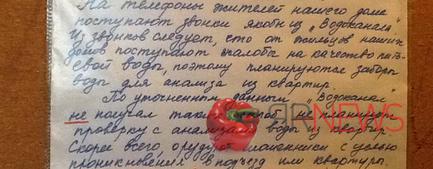 На телефоны жителей нашего дома
поступают звонки якобы из „Водоканала"
Из звонков следует, что от жильцов наших
домов поступают жалобы на качество питье-
вой воды, поэтому планируются заборы
воды для анализа из квартир.
По уточненным данным „Водоканал"
не получал таких жалоб не планирует
проверку с анализами воды из квартир
Скорее всего, орудуют мошенники с целью
проникновения в подъезд или квартиры.
NEWS